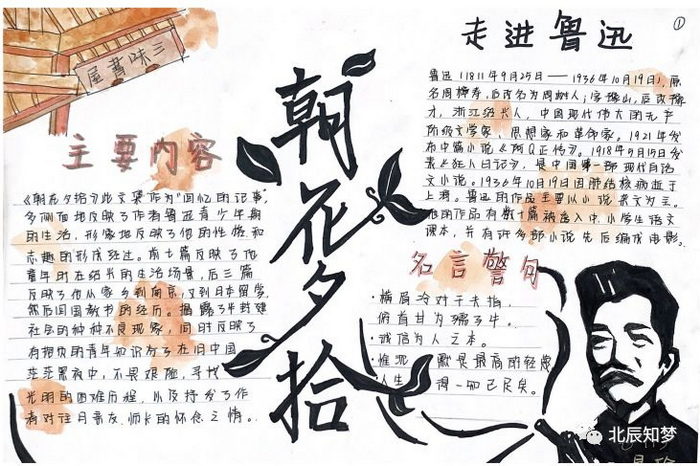 三味書屋
①
走进鲁迅
鲁迅(1811年9月25日——1936年10月19日),原
名周樟寿,后改名为周树人;字豫山,后改豫
才,浙江绍兴人,中国现代伟大的无产
阶级文学家、思想家和革命家。1921年发
布中篇小说《阿Q正传》。1918年5月15日发
表《狂人日记》,是中国第一部现代白话
文小说。1936年10月19日因肺结核病逝于
上海。鲁迅的作品主要以小说、杂文为主。
他的作品有数十篇被选入中、小学生语文
课本,并有许多部小说先后编成电影。
朝花夕拾
主要内容
《朝花夕拾》此文集作为"回忆的记事",
多侧面地反映了作者鲁迅青少年时期
的生活,形象地反映了他的性格和
志趣的形成经过。前七篇反映了他
童年时在绍兴的生活场景,后三篇
反映了他从家乡到南京,又到日本留学,
然后回国教书的经历。揭露了半封建
社会的种种不良现象,同时反映了
有抱负的青年知识分子在旧中国
茫茫黑夜中,不畏艰险,寻找
光明的困难历程,以及抒发了作
者对往日亲友、师长的怀念之情。
名言警句
·横眉冷对千夫指,
俯首甘为孺子牛。
·诚信为人之本。
·惟沉默是最高的轻蔑
·人生得一知己足矣。
北辰知梦